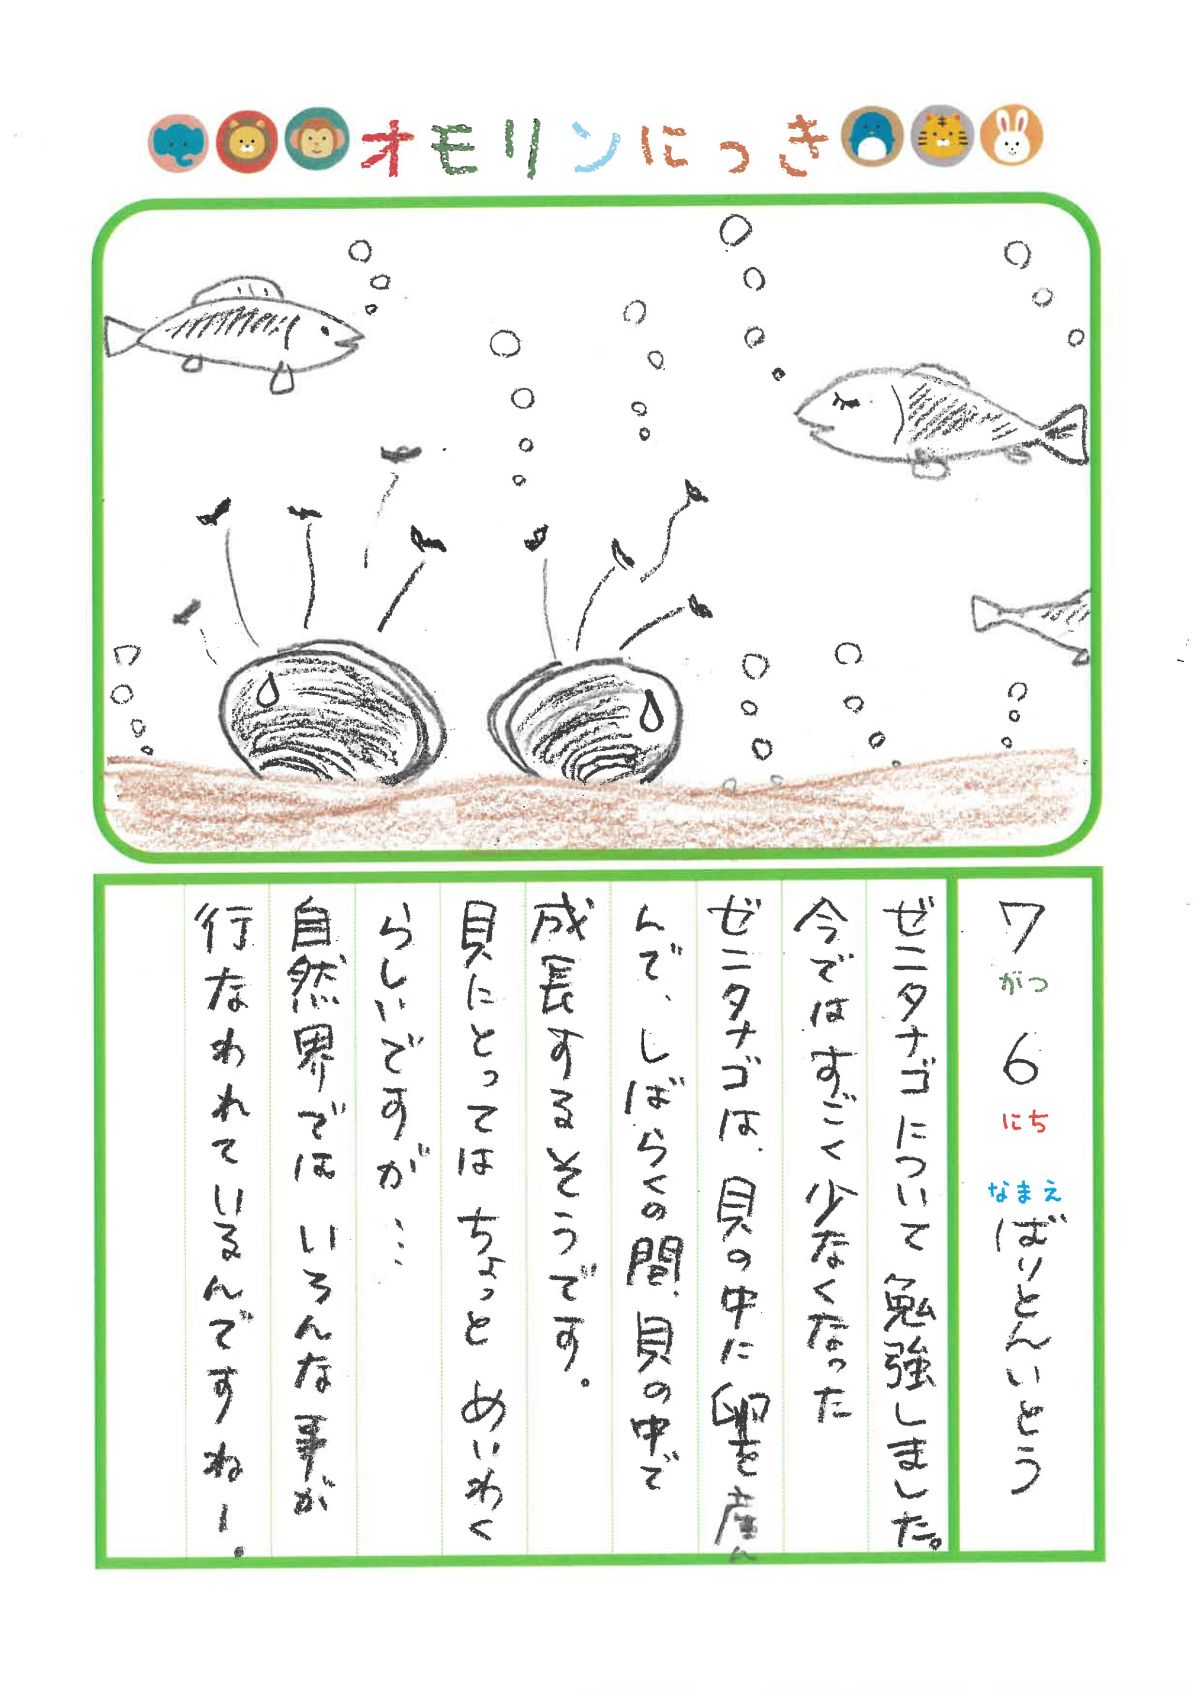 オモリンにっき
7がつ6にち なまえ ばりとんいとう
ゼニタナゴについて勉強しました。
今ではすごく少なくなった
ゼニタナゴは、貝の中に卵を産ん
んで、しばらくの間、貝の中で
成長するそうです。
貝にとっては ちょっと めいわく
らしいですが…
自然界では いろんな事が
行なわれているんですねー。